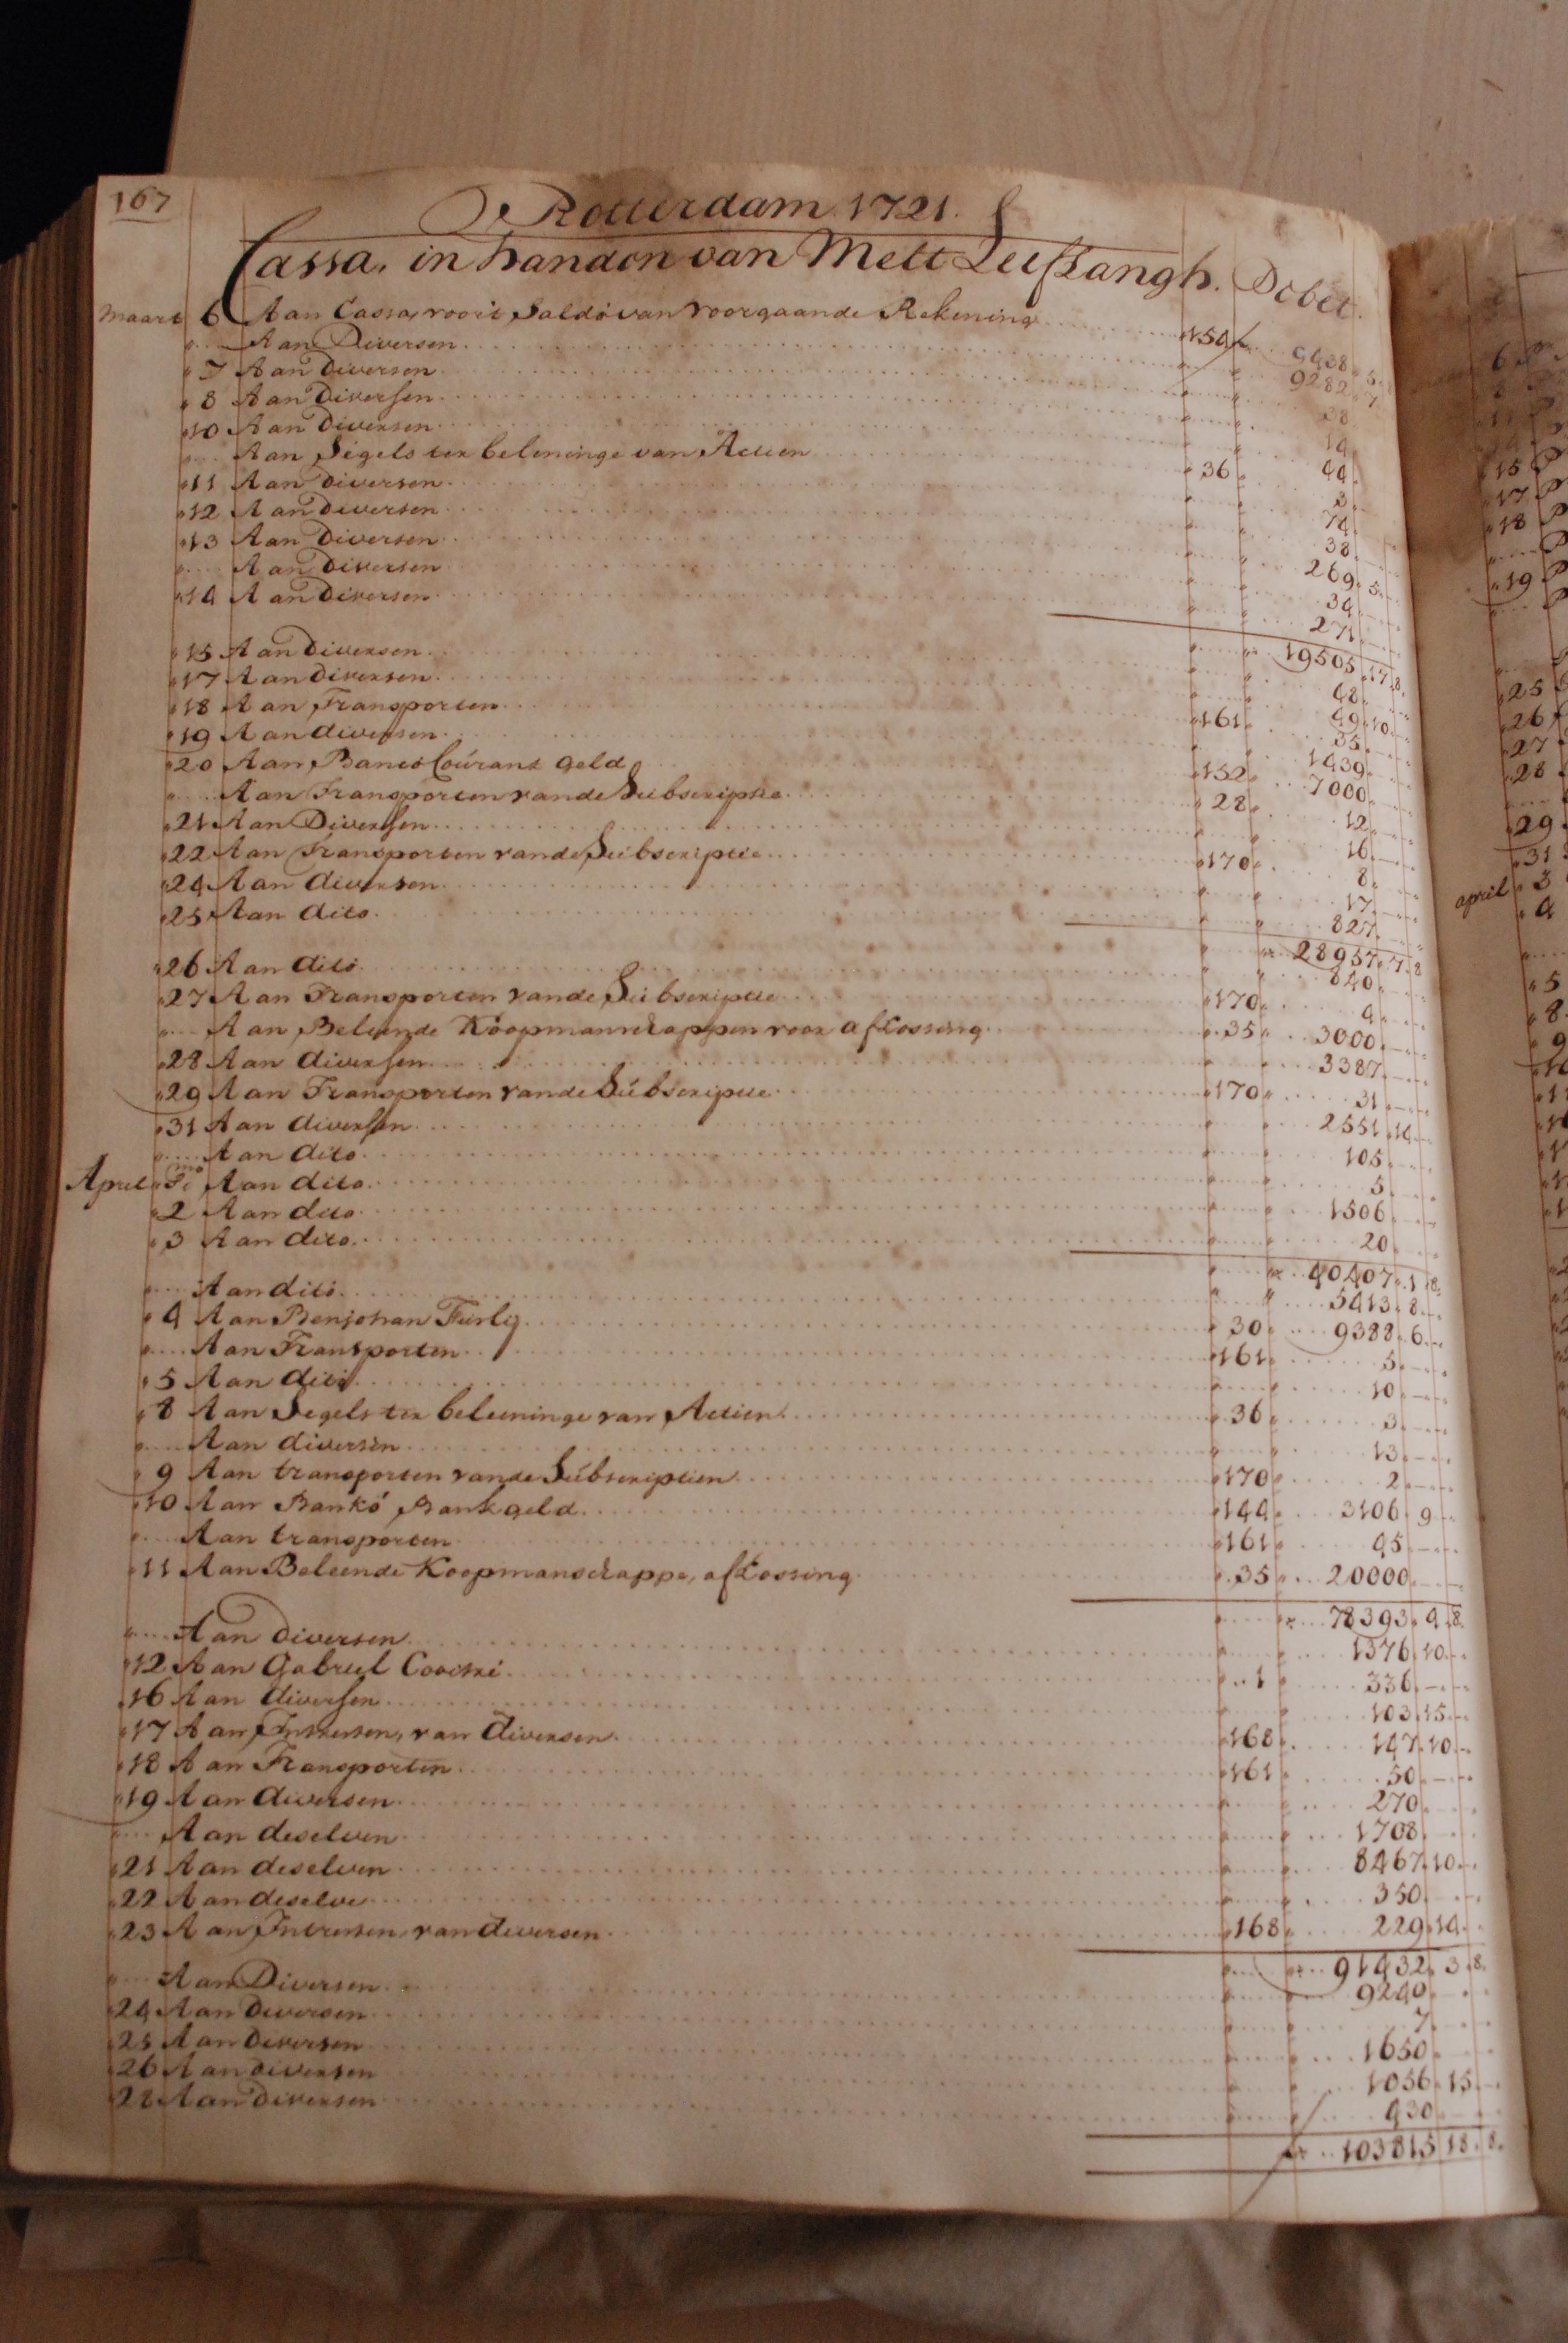 167
Rotterdam 1721.
Cassa, in handen van Mett Leefsangh. Debet.
Maart 6 Aan Cassa, voor't Saldo van voorgaande Rekening 154 9438 5
Aan Diversen 9282 7
7 Aan Diversen 38
8 Aan Diversen 14
10 Aan Diversen 44
Aan Segels ter beleninge van Actien 36 3
11 Aan Diversen 74
12 Aan Diversen 38
13 Aan Diversen 269 5
Aan Diversen 34
14 Aan Diversen 271
19505 17 8
15 Aan Diversen 48
17 Aan Diversen 49 10
18 Aan Transporten 161 35
19 Aan diversen 1439
20 Aan Banco Courant geld 152 7000
Aan Transporten vande Subscriptie 28 12
21 Aan Diversen 16
22 Aan Transporten vande Subscriptie 170 8
24 Aan diversen 17
25 Aan dito 827
28957 7 8
26 Aan dito 840
27 Aan Transporten vande Subscriptie 170 4
Aan Beleende Koopmanschappen voor aflossing 35 3000
28 Aan diversen 3387
29 Aan Transporten vande Subscriptie 170 31
31 Aan diversen 2551 14
Aan dito 105
April Pmo Aan dito 5
2 Aan dito 1506
3 Aan dito 20
40407 1 8
Aan dito 5413 8
4 Aan Benjohan Furly 30 9388 6
Aan Transporten 161 5
5 Aan dito 10
8 Aan Segels ter beleeninge van Actien 36 3
Aan diversen 13
9 Aan transporten vande Subscriptien 170 2
10 Aan Banko Bankgeld 144 3106 9
Aan transporten 161 45
11 Aan Beleende Koopmanschappe, aflossing 35 20000
78393 4 8
Aan Diversen 1376 10
12 Aan Gabriel 1 336
16 Aan diversen 103 15
17 Aan Intressen, van diversen 168 147 10
18 Aan Transporten 161 50
19 Aan diversen 270
Aan deselven 1708
21 Aan deselven 8467 10
22 Aan deselve 350
23 Aan Intressen van diversen 168 229 14
91432 3 8
Aan Diversen 9240
24 Aan Diversen 7
25 Aan Diversen 1650
26 Aan diversen 1056 15
28 Aan Diversen 430
103815 18 8
6
15
17
18
19
25
26
27
28
29
31
april 3
4
5
8
9